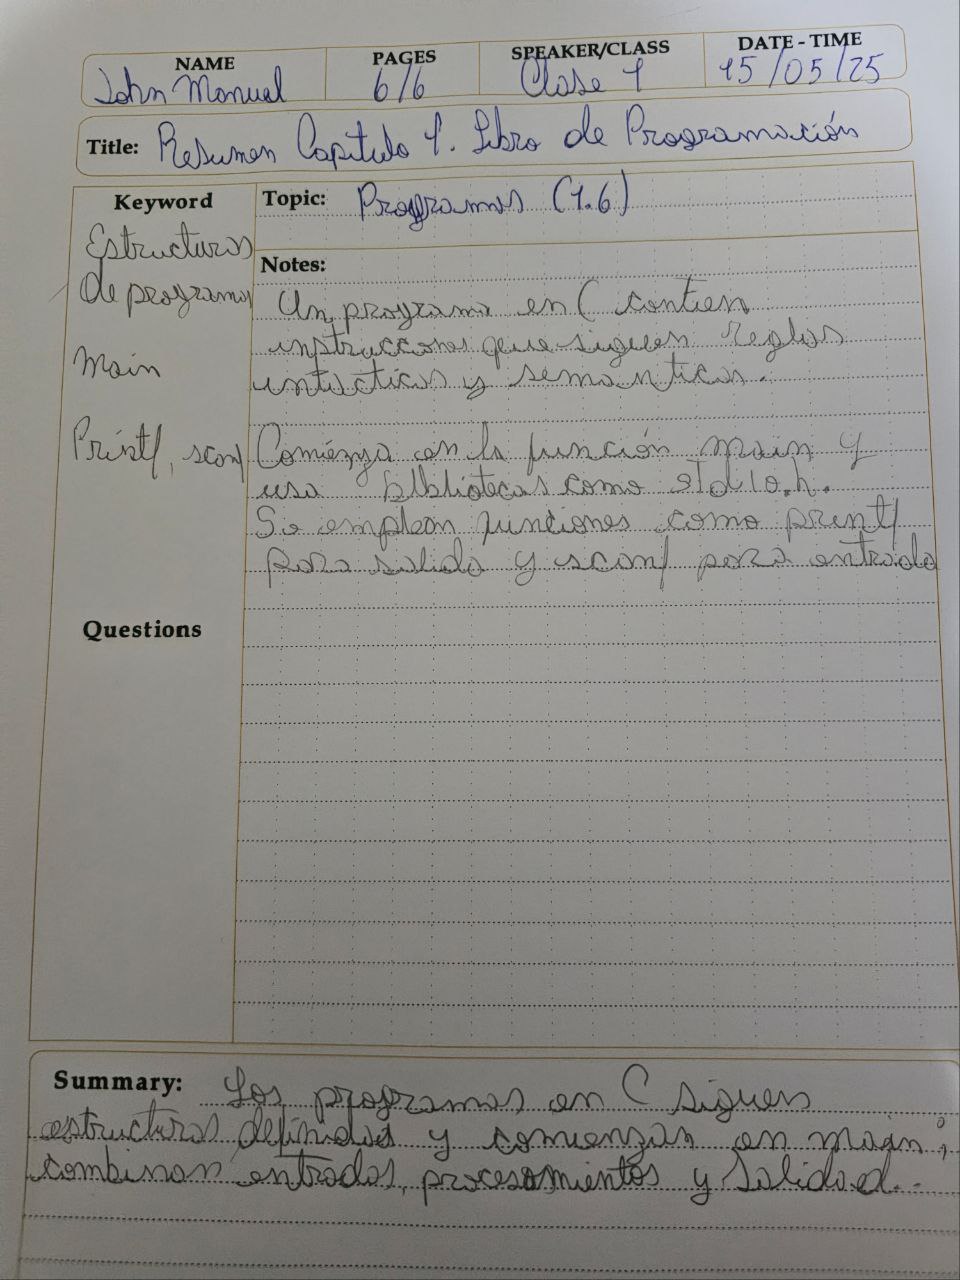 NAME PAGES SPEAKER/CLASS DATE - TIME
John Manuel 6/6 Clase 1 15/05/25
Title: Resumen Capitulo 1. Libro de Programación
Keyword
Topic: Programas (1.6)
Estructuras
de programas
Main
Printf, scanf
Notes:
Un programa en C contien
instrucciones que siguen reglas
intacticas y semanticas.
Comienza en la función main y
usa bibliotecas como stdio.h.
Se emplean funciones como printf
para salida y scanf para entrada
Questions
Summary: Los programas en C siguen
estructuras definidas y comienzan en main;
combinan entradas, procesamientos y salidad.